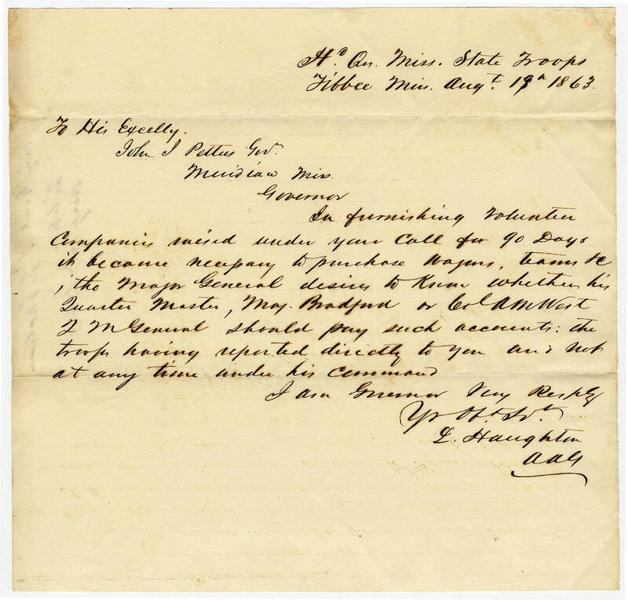 Hd Qrs. Miss. State Troops
Tibbee Miss. Augt. 19th 1863.
To His Excelly.
John J Pettus Govr.
Meridian Miss.
Governor
In furnishing Volunteer
Companies raised under your Call for 90 Days
it became necessary to purchase Wagons, teams &c
; the Major General desires to Know whether his
Quarter Master, Maj. Bradford or Col A M West
Q M General should pay such accounts: the
troops having reported directly to you and not
at any time under his command
I am Governor Very Resply
Yr Obt. Svt.
L. Haughton
AAG